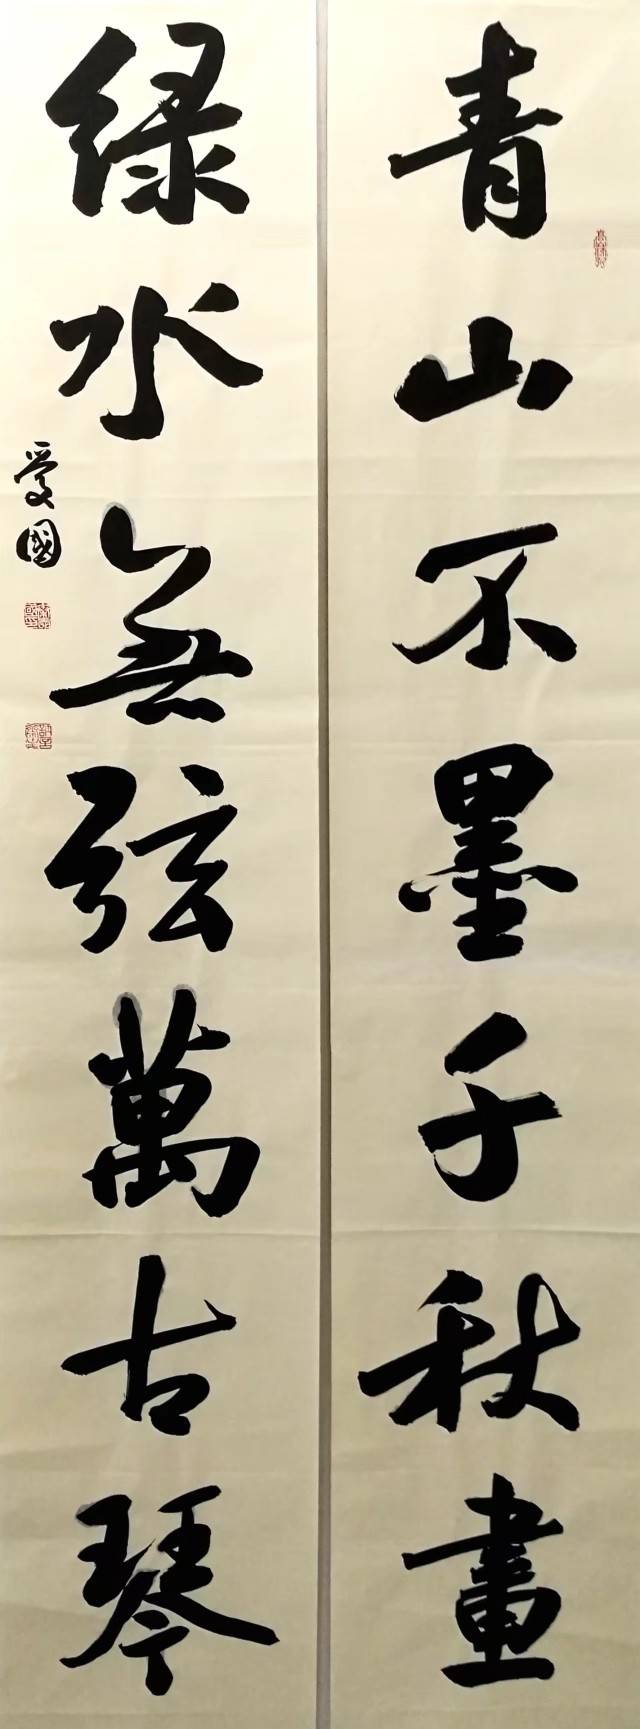 青山不墨千秋畫
绿水無弦萬古琴
爱國